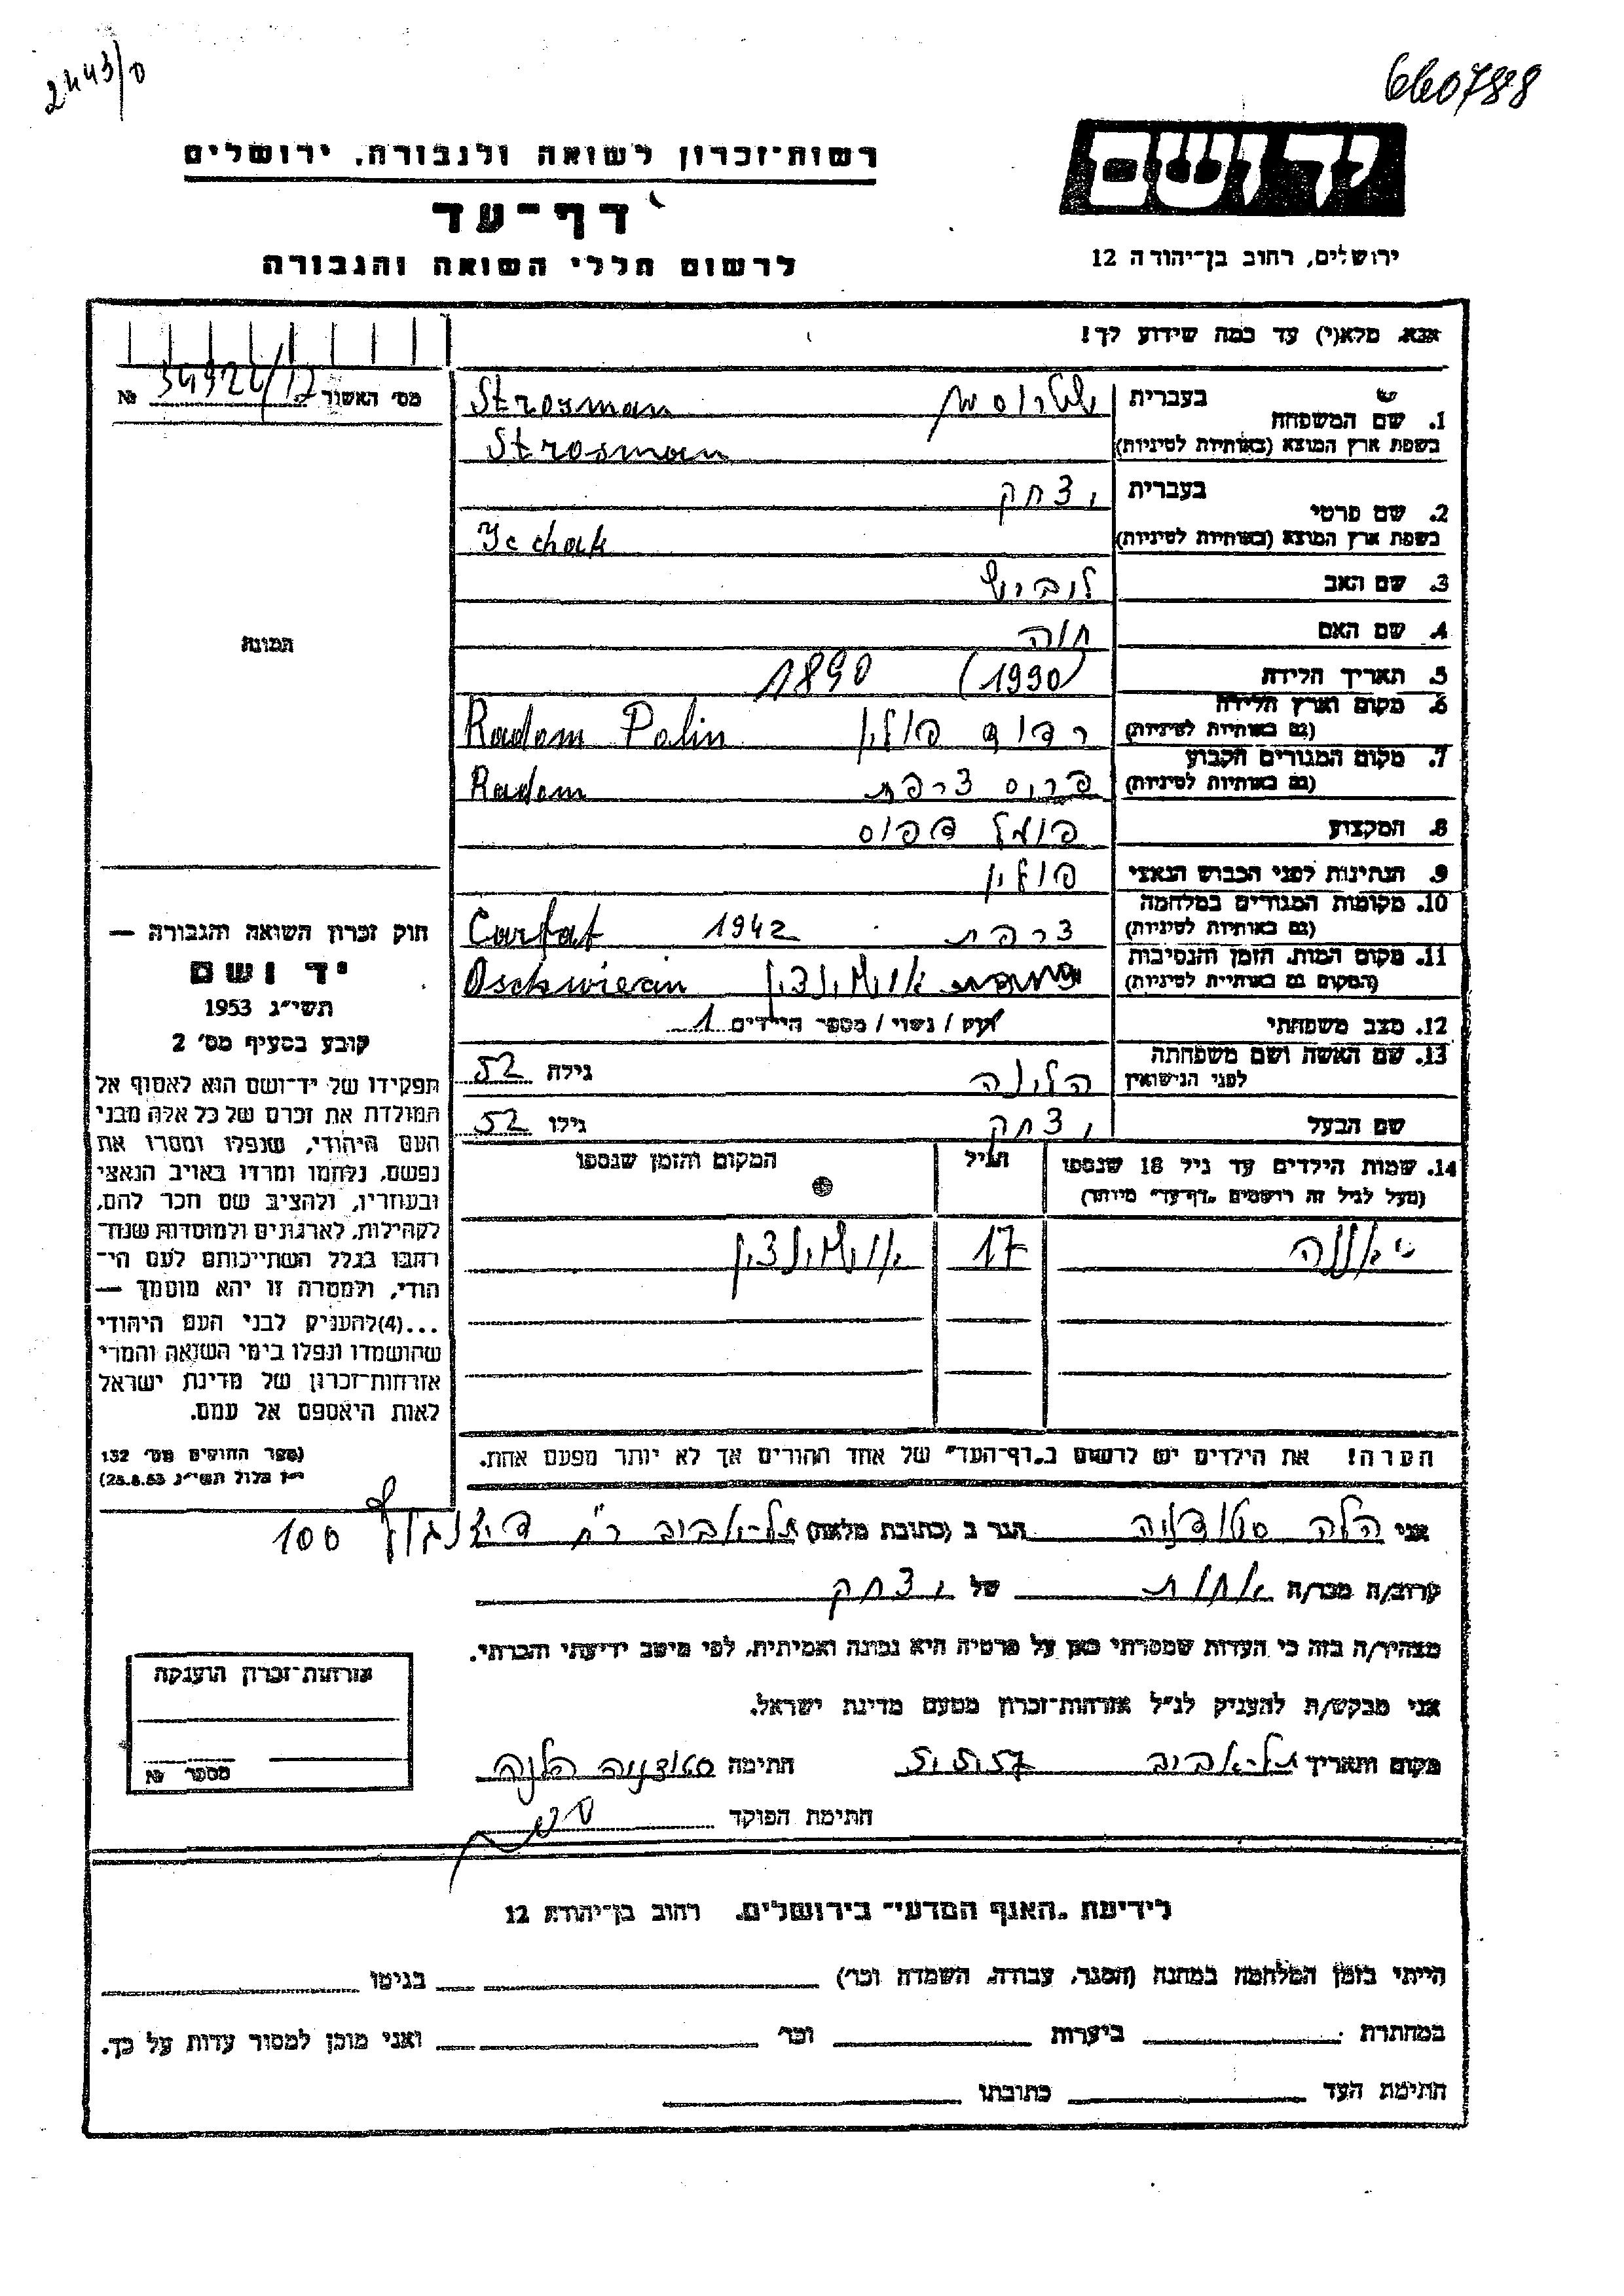 2443/0
660788
רשות־זכרון לשואה ולגבורה, ירושלים
דף־עד
לרשום חללי השואה והגבורה
יד ושם
ירושלים, רחוב בן־יהודה 12
אנא, מלא(י) עד כמה שידוע לך!
מס׳ האשור № 34924/12
1. שם המשפחה
בעברית
Strosman
בשפת ארץ המוצא (באותיות לטיניות)
Strosman
2. שם פרטי
בעברית יצחק
בשפת ארץ המוצא (באותיות לטיניות)
Icchak
3. שם האב לוביש
4. שם האם חוה
5. תאריך הלידה (1990) 1890
6. מקום וארץ הלידה
(גם באותיות לטיניות)
רדום פולין Radom Polin
7. מקום המגורים הקבוע
(גם באותיות לטיניות)
פריס צרפת Radom
8. המקצוע פועל דפוס
9. הנתינות לפני הכבוש הנאצי פולין
10. מקומות המגורים במלחמה
(גם באותיות לטיניות)
צרפת 1942 Carfat
11. מקום המות, הזמן והנסיבות
(המקום גם באותיות לטיניות)
אושוינצין
12. מצב משפחתי
רווק / נשוי / מספר הילדים 1
13. שם האשה ושם משפחתה
לפני הנישואין
הלינה גילה 52
שם הבעל יצחק גילו 52
14. שמות הילדים עד גיל 18 שנספו
(מעל לגיל זה רושמים „דף־עד״ מיוחד)
הגיל
המקום והזמן שנספו
17 אושוינצין
הערה! את הילדים יש לרשום ב„דף־העד״ של אחד ההורים אך לא יותר מפעם אחת.
התמונה
חוק זכרון השואה והגבורה —
יד ושם
תשי״ג 1953
קובע בסעיף מס׳ 2
תפקידו של יד־ושם הוא לאסוף אל
המולדת את זכרם של כל אלה מבני
העם היהודי, שנפלו ומסרו את
נפשם, נלחמו ומרדו באויב הנאצי
ובעוזריו, ולהציב שם וזכר להם,
לקהילות, לארגונים ולמוסדות שנח־
רבו בגלל השתייכותם לעם הי־
הודי, ולמטרה זו יהא מוסמך —
...(4)להעניק לבני העם היהודי
שהושמדו ונפלו בימי השואה והמרי
אזרחות־זכרון של מדינת ישראל
לאות היאספם אל עמם.
(ספר החוקים מס׳ 132
י״ז אלול תשי״ג 28.8.53)
אני הלה סטודניה הגר ב (כתובת מלאה) תל-אביב רח׳ דיזנגוף 100
קרוב/ה מכר/ה אחות של יצחק
מצהיר/ה בזה כי העדות שמסרתי כאן על פרטיה היא נכונה ואמיתית, לפי מיטב ידיעתי והכרתי.
אני מבקש/ת להעניק לנ״ל אזרחות־זכרון מטעם מדינת ישראל.
מקום ותאריך תל-אביב 5.5.57 חתימה סטודניה הלנה
חתימת הפוקד
אזרחות־זכרון הוענקה
מספר №
לידיעת „האגף המדעי״ בירושלים. רחוב בן־יהודה 12
הייתי בזמן המלחמה במחנה (הסגר, עבודה, השמדה וכו׳)
בגיטו
במחתרת
ביערות
וכו׳
ואני מוכן למסור עדות על כך.
חתימת העד
כתובתו